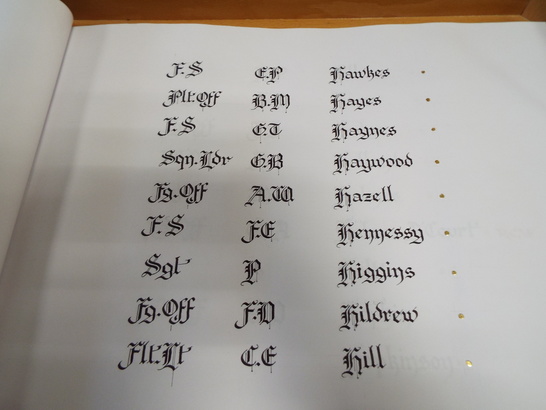 F.S E.P Hawkes
Plt.Off B.M Hayes
F.S G.T Haynes
Sqn.Ldr G.B Haywood
Fg.Off A.W Hazell
F.S F.E Hennessy
Sgt P Higgins
Fg.Off F.D Hildrew
Flt.Lt C.E Hill